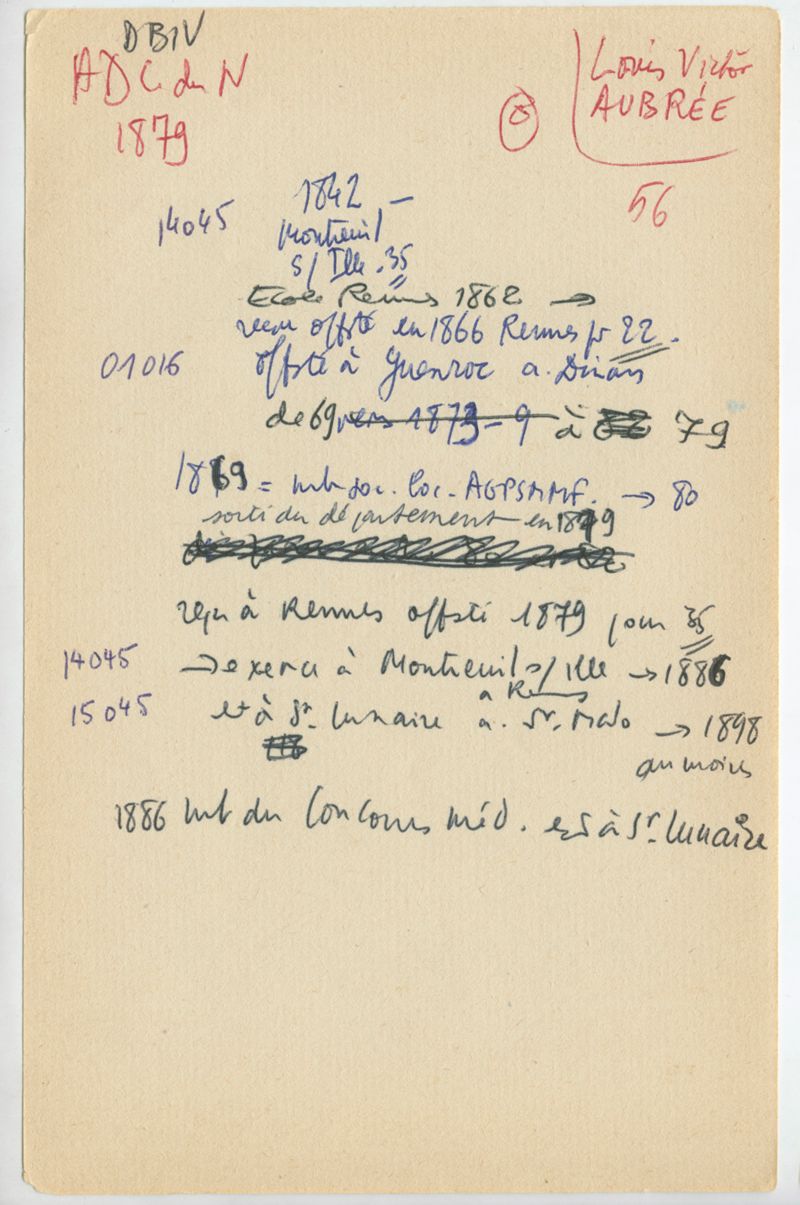 DBIV
ADC. du N
1879
Louis Victor
AUBRÉE
56
1842 —
14045
Montreuil
s/ Ille . 35
Ecole Rennes 1862 →
reçu offste en 1866 Rennes pr 22.
01016 offste à Guenroc a. Dinan
de 69 vers 1873 - 9 à 79
1869 = mb soc. loc. AGPSMMF. → 80
sorti du département en 1879
reçu à Rennes offste 1879 pour 35
14045 → exerce à Montreuil s/ Ille → 1886
a Rennes
15045 et à St. Lunaire a. St. Malo → 1898
au moins
1886 mb du Concours méd. est à St. Lunaire